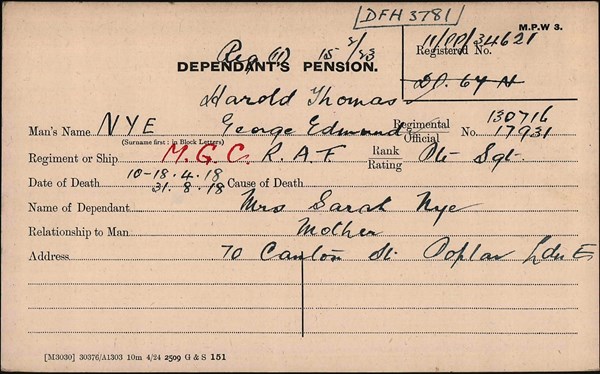 DFH 3781
M.P.W 3.
Reg (11) 15 2/23
11/DP/34621
Registered No.
DEPENDANT'S PENSION.
D.P. 64 N
Harold Thomas
Man's Name NYE George Edmund Regimental Official No. 130716 17931
(Surname first : in Block Letters)
Regiment or Ship M.G.C. R.A.F. Rank Rating Pte Sgt.
Date of Death 10-18.4.18 31.8.18 Cause of Death
Name of Dependant Mrs Sarah Nye
Relationship to Man Mother
Address 70 Canton St. Poplar Ldn E
[M3030] 30376/A1303 10m 4/24 2509 G & S 151